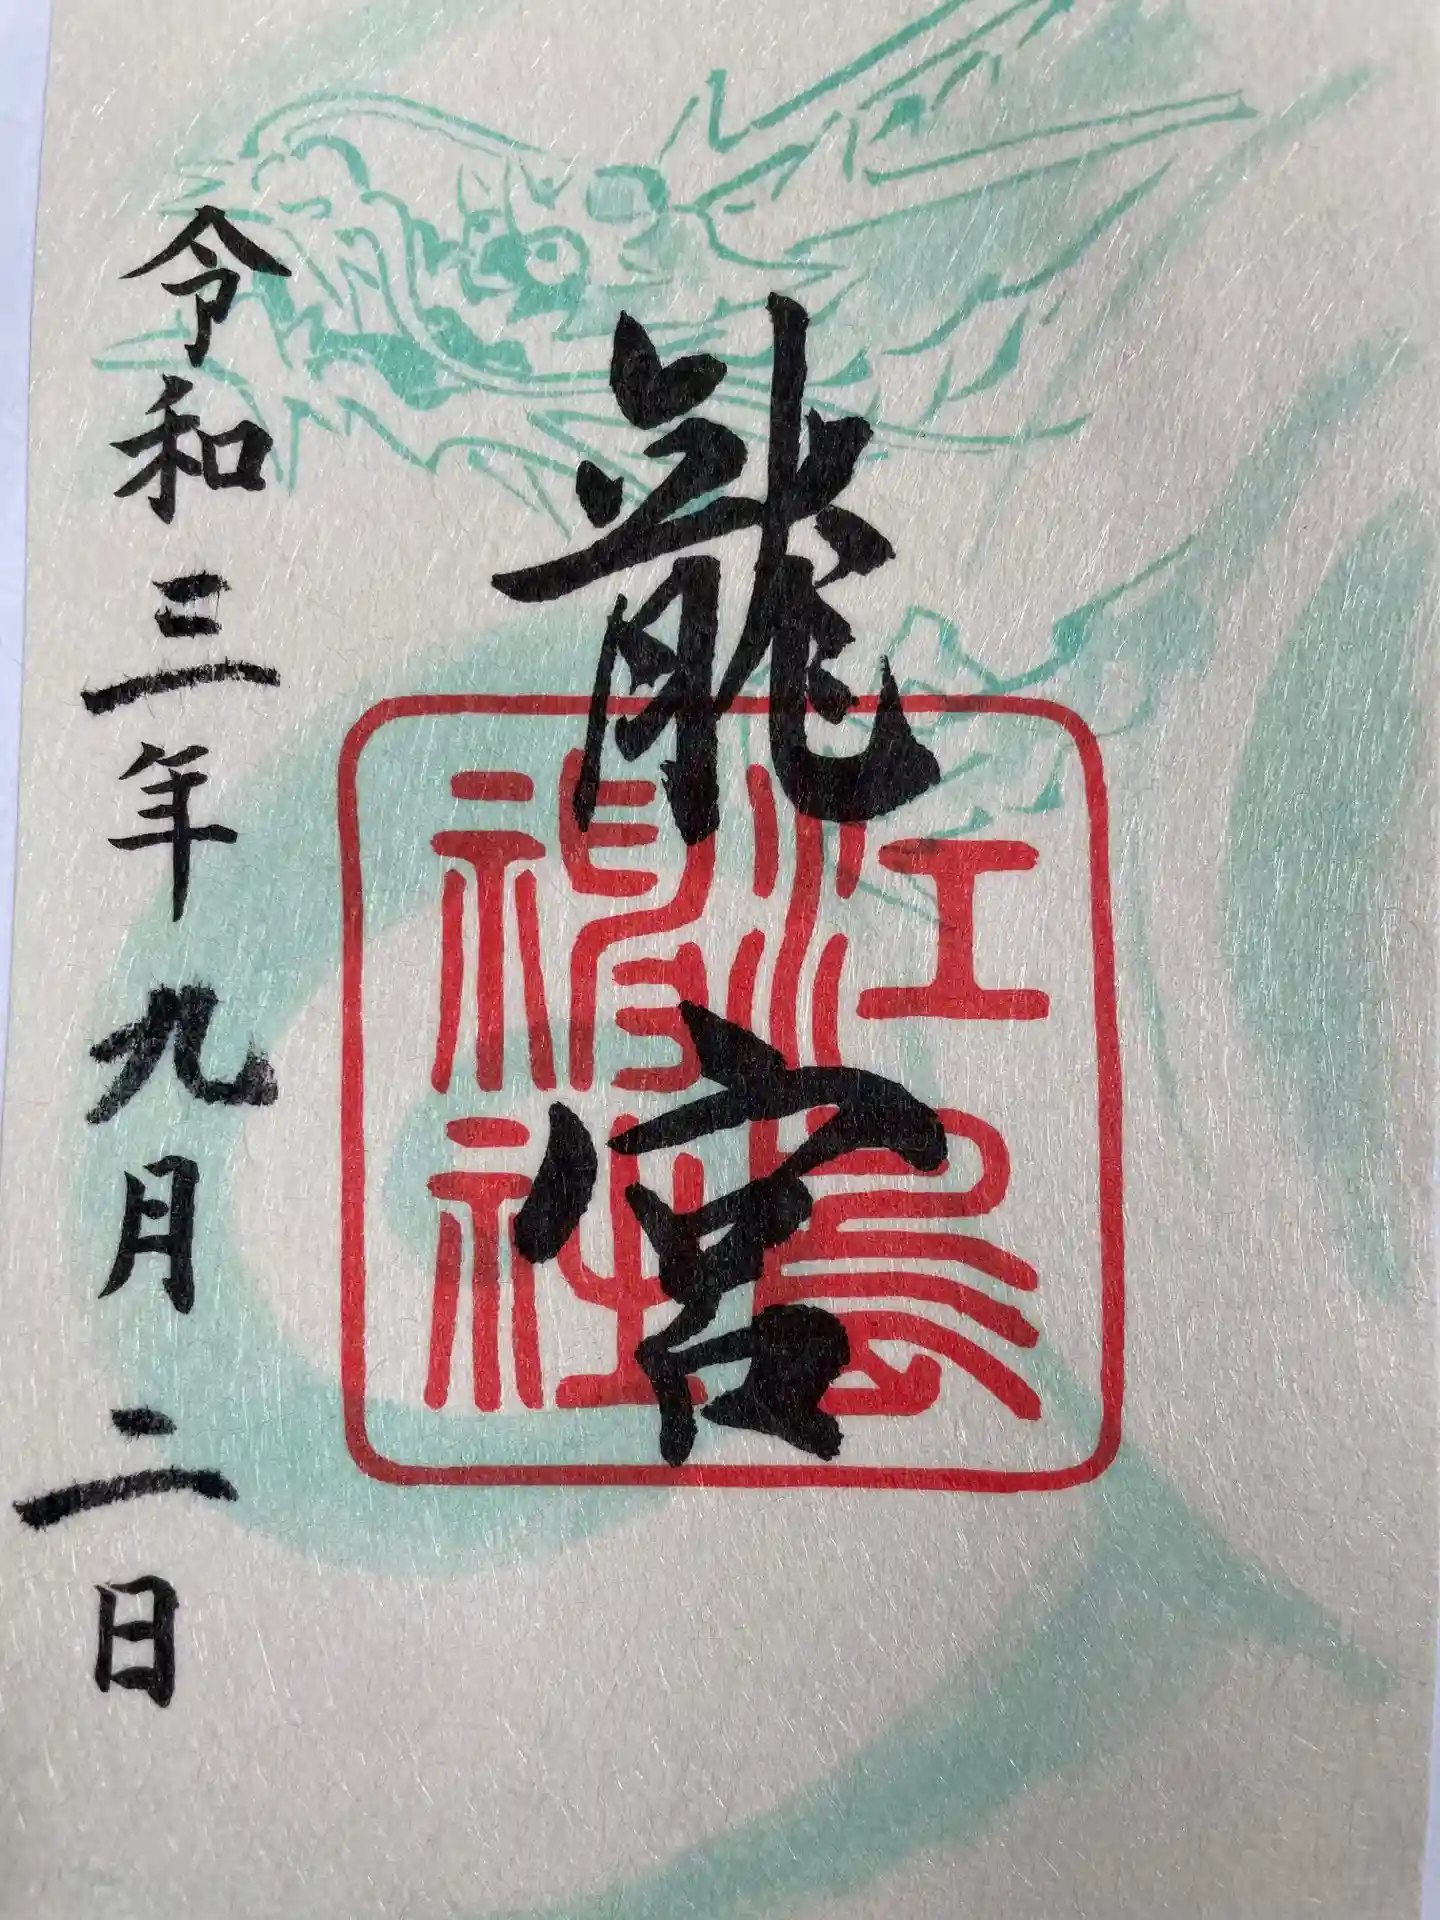 龍宮
江島神社
令和三年九月二日